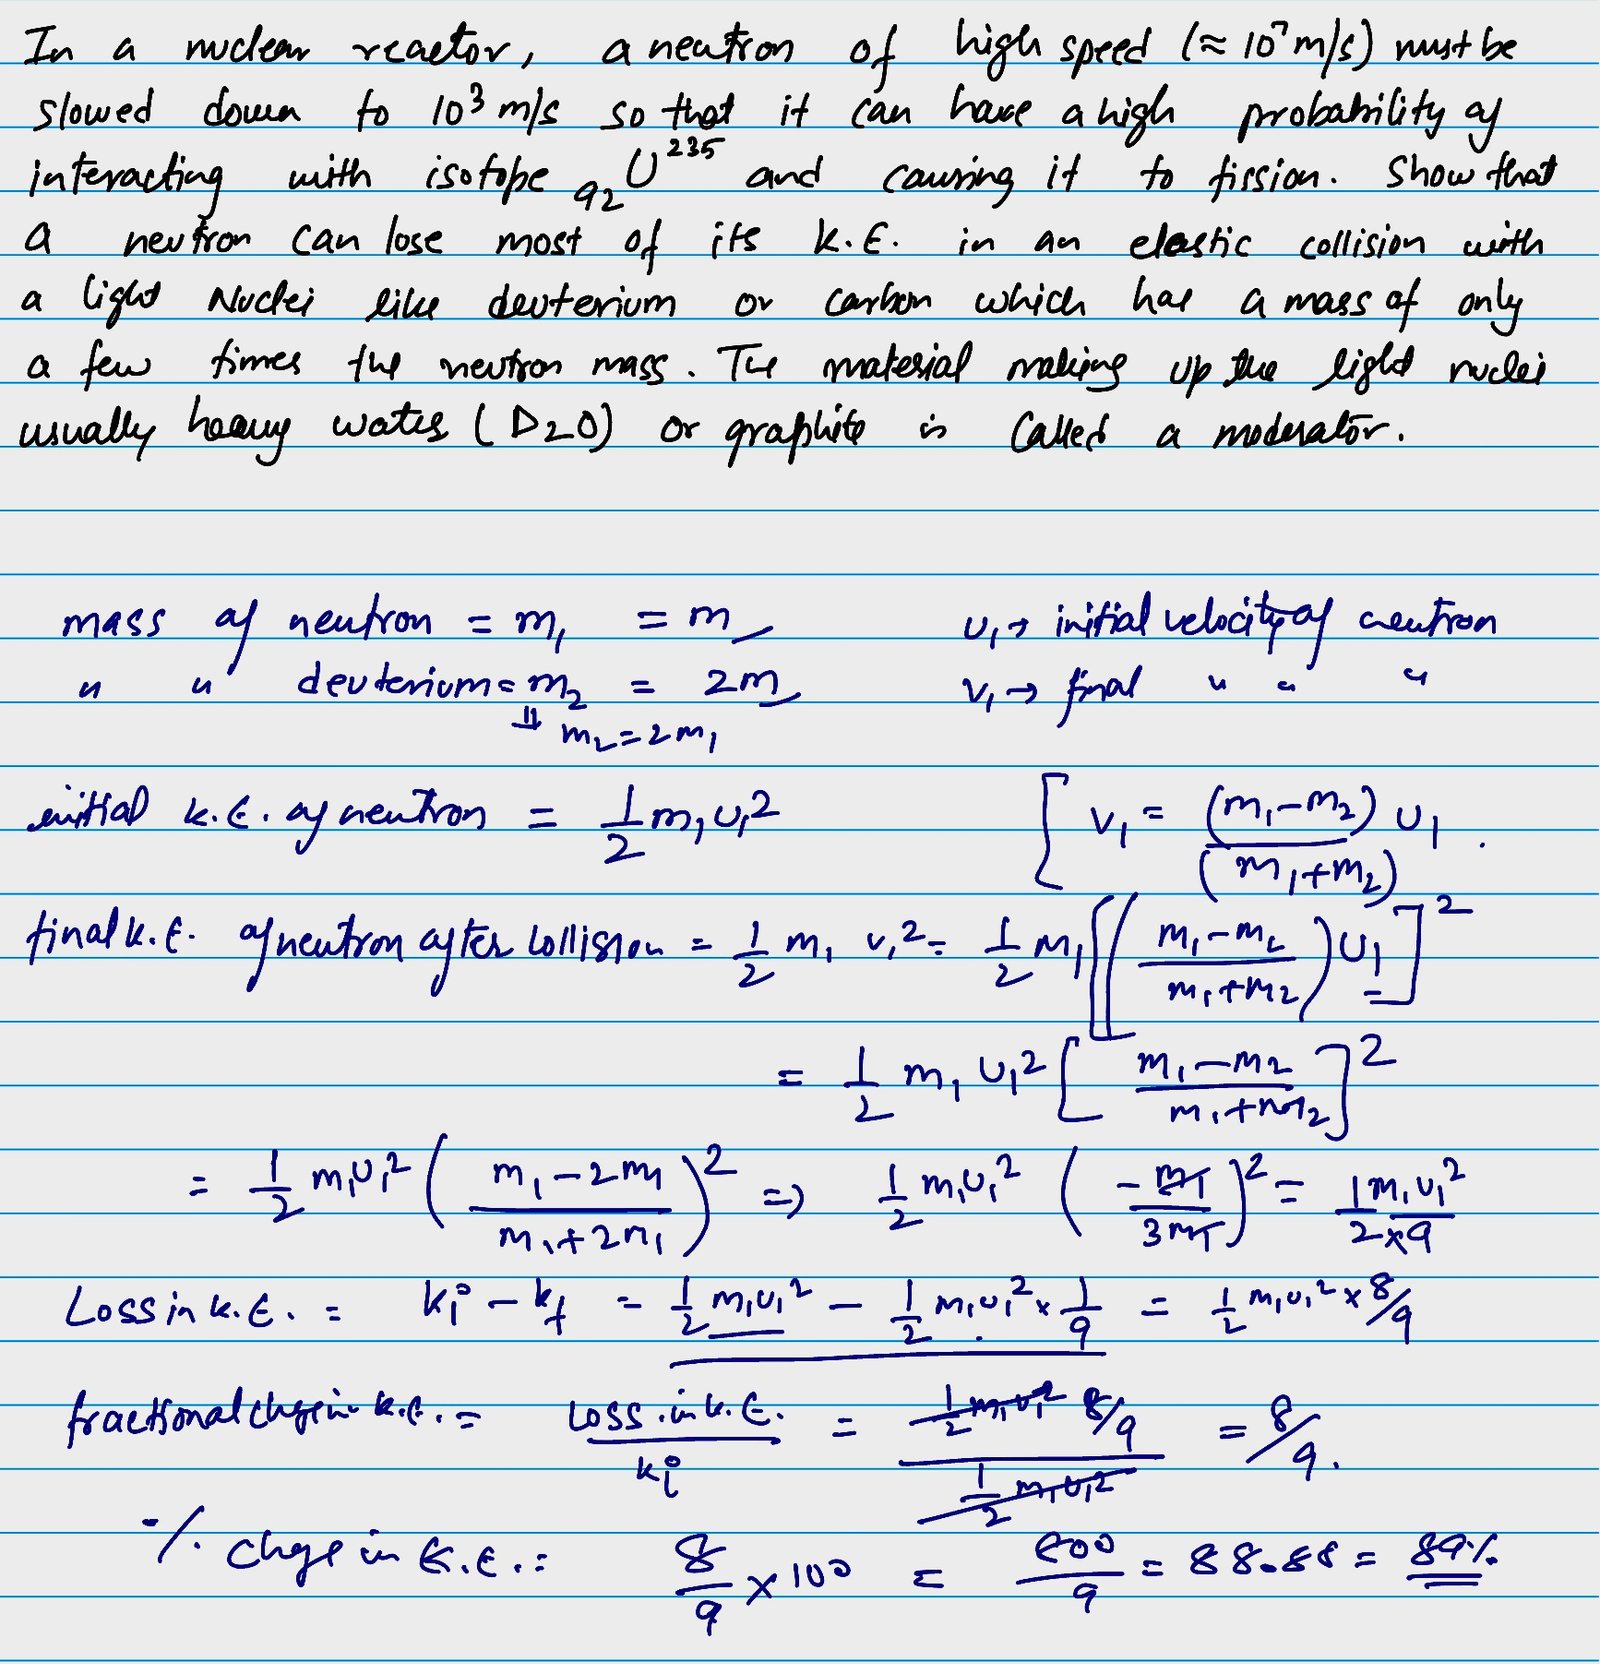 In a nuclear reactor, a neutron of high speed (≈ 10⁷ m/s) must be
slowed down to 10³ m/s so that it can have a high probability of
interacting with isotope ₉₂U²³⁵ and causing it to fission. Show that
a neutron can lose most of its K.E. in an elastic collision with
a light Nuclei like deuterium or carbon which has a mass of only
a few times the neutron mass. The material making up the light nuclei
usually heavy water (D₂O) or graphite is Called a moderator.
mass of neutron = m₁ = m u₁ → initial velocity of neutron
" " deuterium = m₂ = 2m v₁ → final " " "
⇓ m₂ = 2m₁
initial K.E. of neutron = 1/2 m₁u₁² [ v₁ = (m₁-m₂)/(m₁+m₂) u₁.
final K.E. of neutron after collision = 1/2 m₁ v₁² = 1/2 m₁[((m₁-m₂)/(m₁+m₂))u₁]²
= 1/2 m₁ u₁² [(m₁-m₂)/(m₁+m₂)]²
= 1/2 m₁u₁² ((m₁-2m₁)/(m₁+2m₁))² => 1/2 m₁u₁² (-m₁/3m₁)² = 1 m₁u₁²/2×9
Loss in K.E. = Ki - Kf = 1/2 m₁u₁² - 1/2 m₁u₁² × 1/9 = 1/2 m₁u₁² × 8/9
fractional chge in K.E. = Loss in K.E./Ki = 1/2 m₁u₁² 8/9 / 1/2 m₁u₁² = 8/9.
% chge in K.E. = 8/9 × 100 = 800/9 = 88.88 = 89%